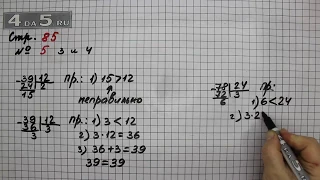 4DA5.RU
Стр. 85
№ 5 3 и 4
-39 | 12
24 | 2
15
пр.: 1) 15 > 12
неправильно
-39 | 12
36 | 3
3
пр.: 1) 3 < 12
2) 3·12 = 36
3) 36+3 = 39
39 = 39
-78 | 24
72 | 3
6
пр:
1) 6 < 24
2) 3·2